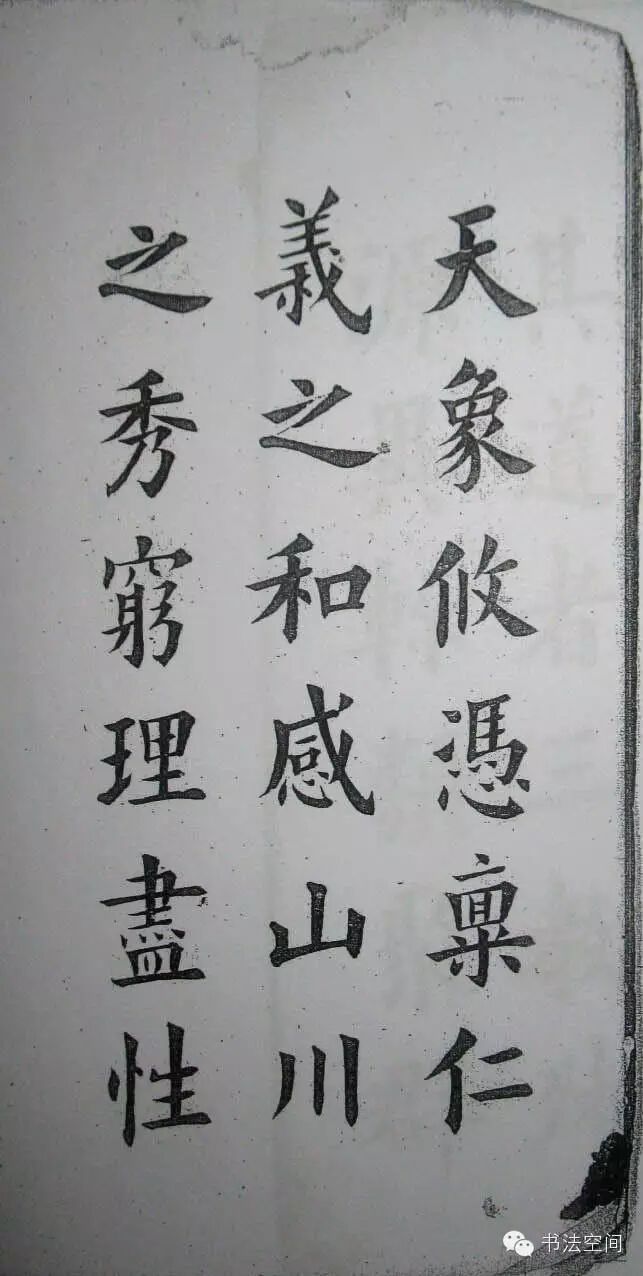 天象攸憑稟仁
義之和感山川
之秀窮理盡性
书法空间